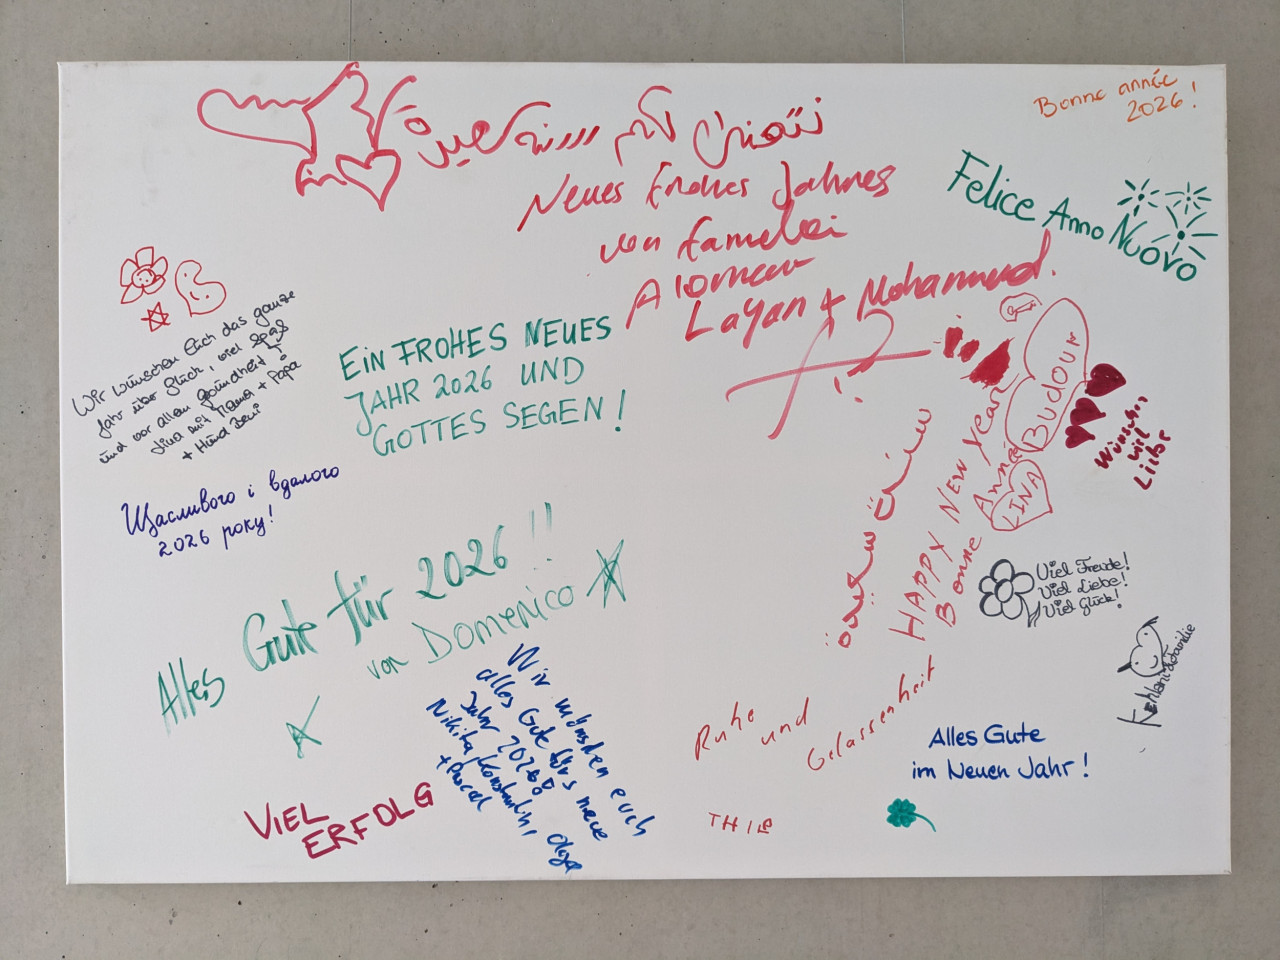 Bonne année
2026!
Felice Anno Nuovo
نتمنى لكم سنه سعيدة
Neues Frohes Jahres
von
Layan + Mohammed.
Wir wünschen Euch das ganze
Jahr über Glück, viel Spaß
und vor allem Gesundheit
Lina mit Mama + Papa
+ Hund Beni
EIN FROHES NEUES
JAHR 2026 UND
GOTTES SEGEN!
Щасливого і вдалого
2026 року!
BUDOUR
LINA
HAPPY NEW year
Bonne Année
سنة سعيدة
Wünschen
viel
Liebe
Viel Freude!
Viel Liebe!
Viel Glück!
Familie
Alles Gute für 2026!!
von Domenico
Wir wünschen euch
alles Gute fürs neue
Jahr 2026!
Nikita,
+ Pascal
VIEL
ERFOLG
Ruhe und Gelassenheit
Alles Gute
im Neuen Jahr!